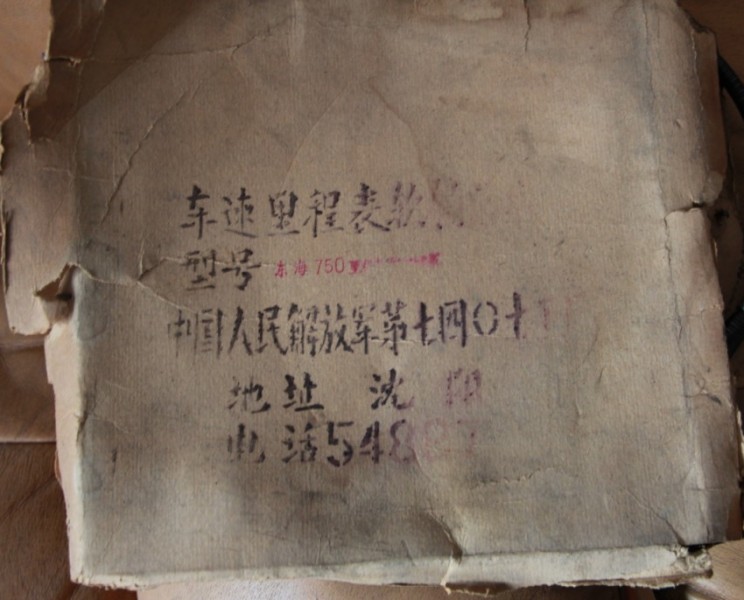 车速里程表软
型号 东海750
中国人民解放军第七四〇七
地址 沈阳
电话548